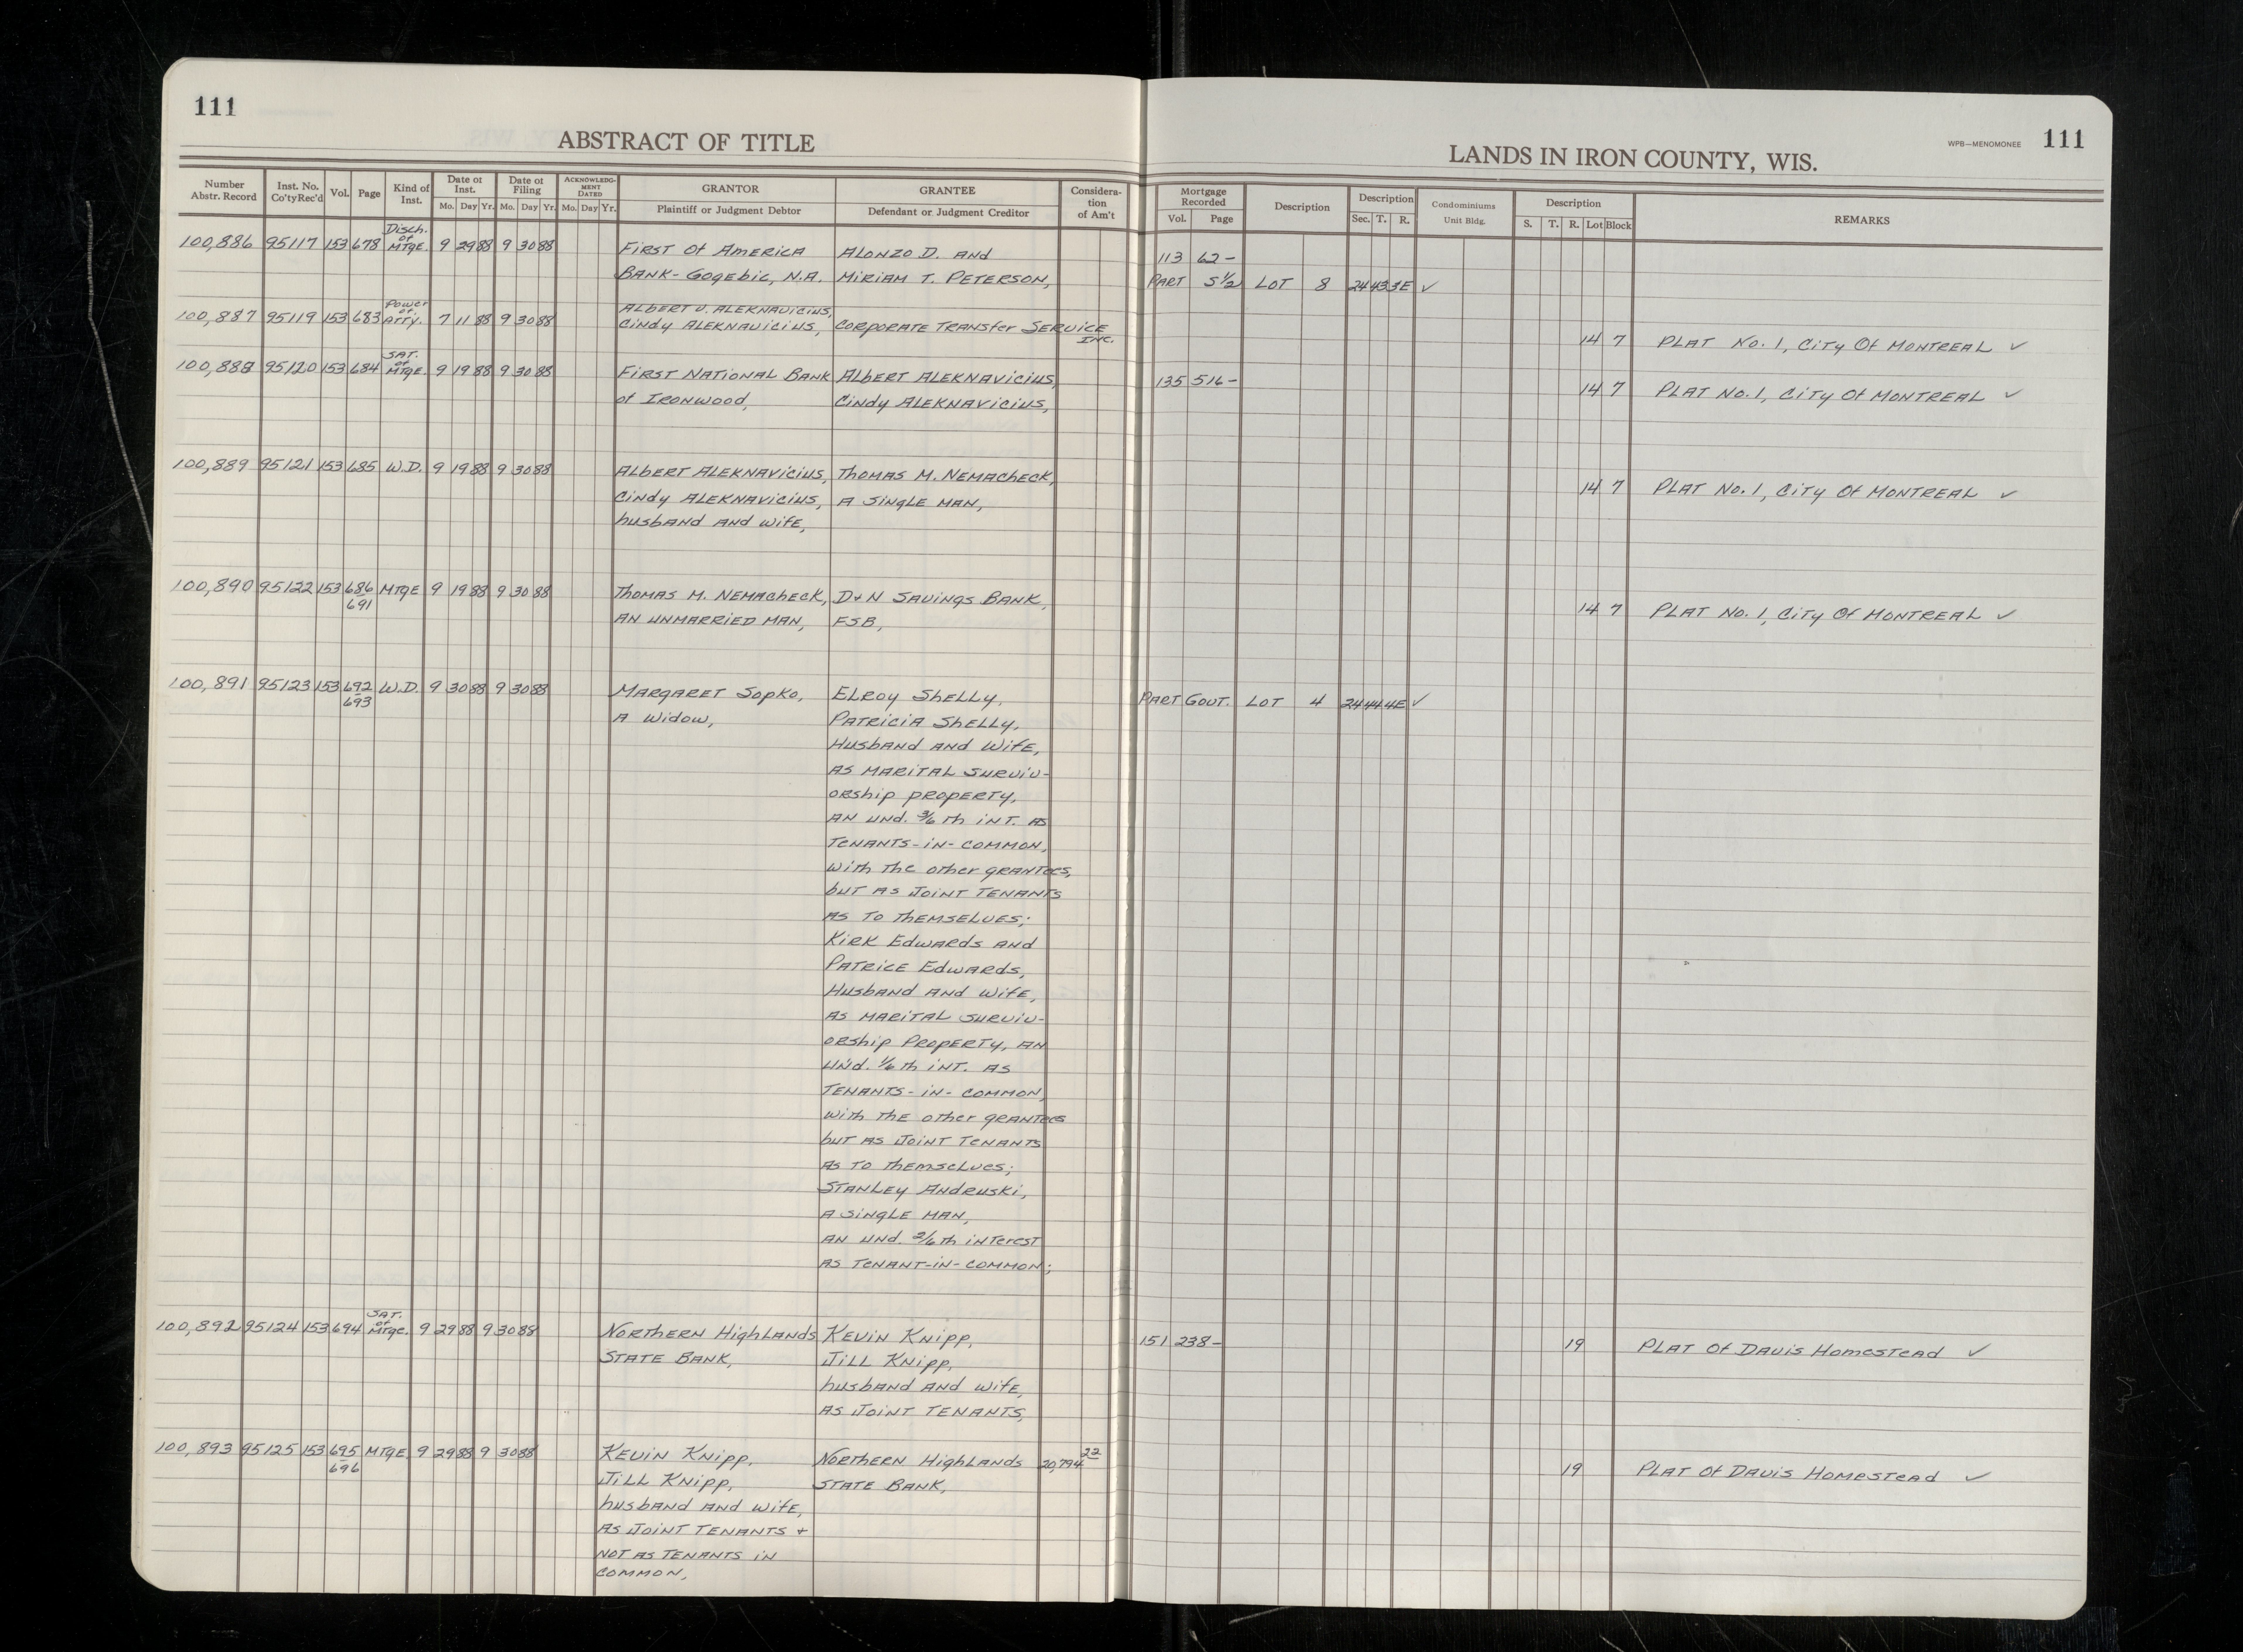 111
ABSTRACT OF TITLE
Number Abstr. Record Inst. No. Co'ty Rec'd Vol. Page Kind of Inst. Date of Inst. Mo. Day Yr. Date of Filing Mo. Day Yr. ACKNOWLEDG-MENT DATED Mo. Day Yr. GRANTOR Plaintiff or Judgment Debtor GRANTEE Defendant or Judgment Creditor Considera-tion of Am't
WPB—MENOMONEE 111
LANDS IN IRON COUNTY, WIS.
Mortgage Recorded Vol. Page Description Description Sec. T. R. Condominiums Unit Bldg. Description S. T. R. Lot Block REMARKS
100,886 95117 153 678 Disch. of MTGE. 9 29 88 9 30 88 FIRST Of AMERICA ALONZO D. AND 113 62-
BANK-GOGEBIC, N.A. MIRIAM T. PETERSON, PART S½ LOT 8 24 43 3E ✓
100,887 95119 153 683 Power of ATTY. 7 11 88 9 30 88 ALBERT V. ALEKNAVICIUS,
CINDY ALEKNAVICIUS, CORPORATE TRANSFER SERVICE INC. 14 7 PLAT NO. 1, CITY OF MONTREAL ✓
100,888 95120 153 684 SAT. of MTGE. 9 19 88 9 30 88 FIRST NATIONAL BANK ALBERT ALEKNAVICIUS, 135 516- 14 7 PLAT NO. 1, CITY OF MONTREAL ✓
of IRONWOOD, CINDY ALEKNAVICIUS,
100,889 95121 153 685 W.D. 9 19 88 9 30 88 ALBERT ALEKNAVICIUS, THOMAS M. NEMACHECK, 14 7 PLAT NO. 1, CITY OF MONTREAL ✓
CINDY ALEKNAVICIUS, A SINGLE MAN,
husband AND WIFE,
100,890 95122 153 686 691 MTGE 9 19 88 9 30 88 THOMAS M. NEMACHECK, D+N SAVINGS BANK, 14 7 PLAT NO. 1, CITY OF MONTREAL ✓
AN UNMARRIED MAN, FSB,
100,891 95123 153 692 693 W.D. 9 30 88 9 30 88 MARGARET SOPKO, ELROY SHELLY, PART GOVT. LOT 4 24 44 4E ✓
A WIDOW, PATRICIA SHELLY,
HUSBAND AND WIFE,
AS MARITAL SURVIV-
ORSHIP PROPERTY,
AN UND. 3/6 th INT. AS
TENANTS-IN-COMMON,
WITH THE OTHER GRANTEES,
BUT AS JOINT TENANTS
AS TO THEMSELVES;
KIRK EDWARDS AND
PATRICE EDWARDS,
HUSBAND AND WIFE,
AS MARITAL SURVIV-
ORSHIP PROPERTY, AN
UND. 1/6 th INT. AS
TENANTS-IN-COMMON,
WITH THE OTHER GRANTEES
BUT AS JOINT TENANTS
AS TO THEMSELVES;
STANLEY ANDRUSKI,
A SINGLE MAN,
AN UND. 2/6 th INTEREST
AS TENANT-IN-COMMON;
100,892 95124 153 694 SAT. of MTGE. 9 29 88 9 30 88 NORTHERN HIGHLANDS KEVIN KNIPP, 151 238- 19 PLAT OF DAVIS HOMESTEAD ✓
STATE BANK, JILL KNIPP,
HUSBAND AND WIFE,
AS JOINT TENANTS,
100,893 95125 153 695 696 MTGE 9 29 88 9 30 88 KEVIN KNIPP, NORTHERN HIGHLANDS 20,794 22 19 PLAT OF DAVIS HOMESTEAD ✓
JILL KNIPP, STATE BANK,
HUSBAND AND WIFE,
AS JOINT TENANTS +
NOT AS TENANTS IN
COMMON,